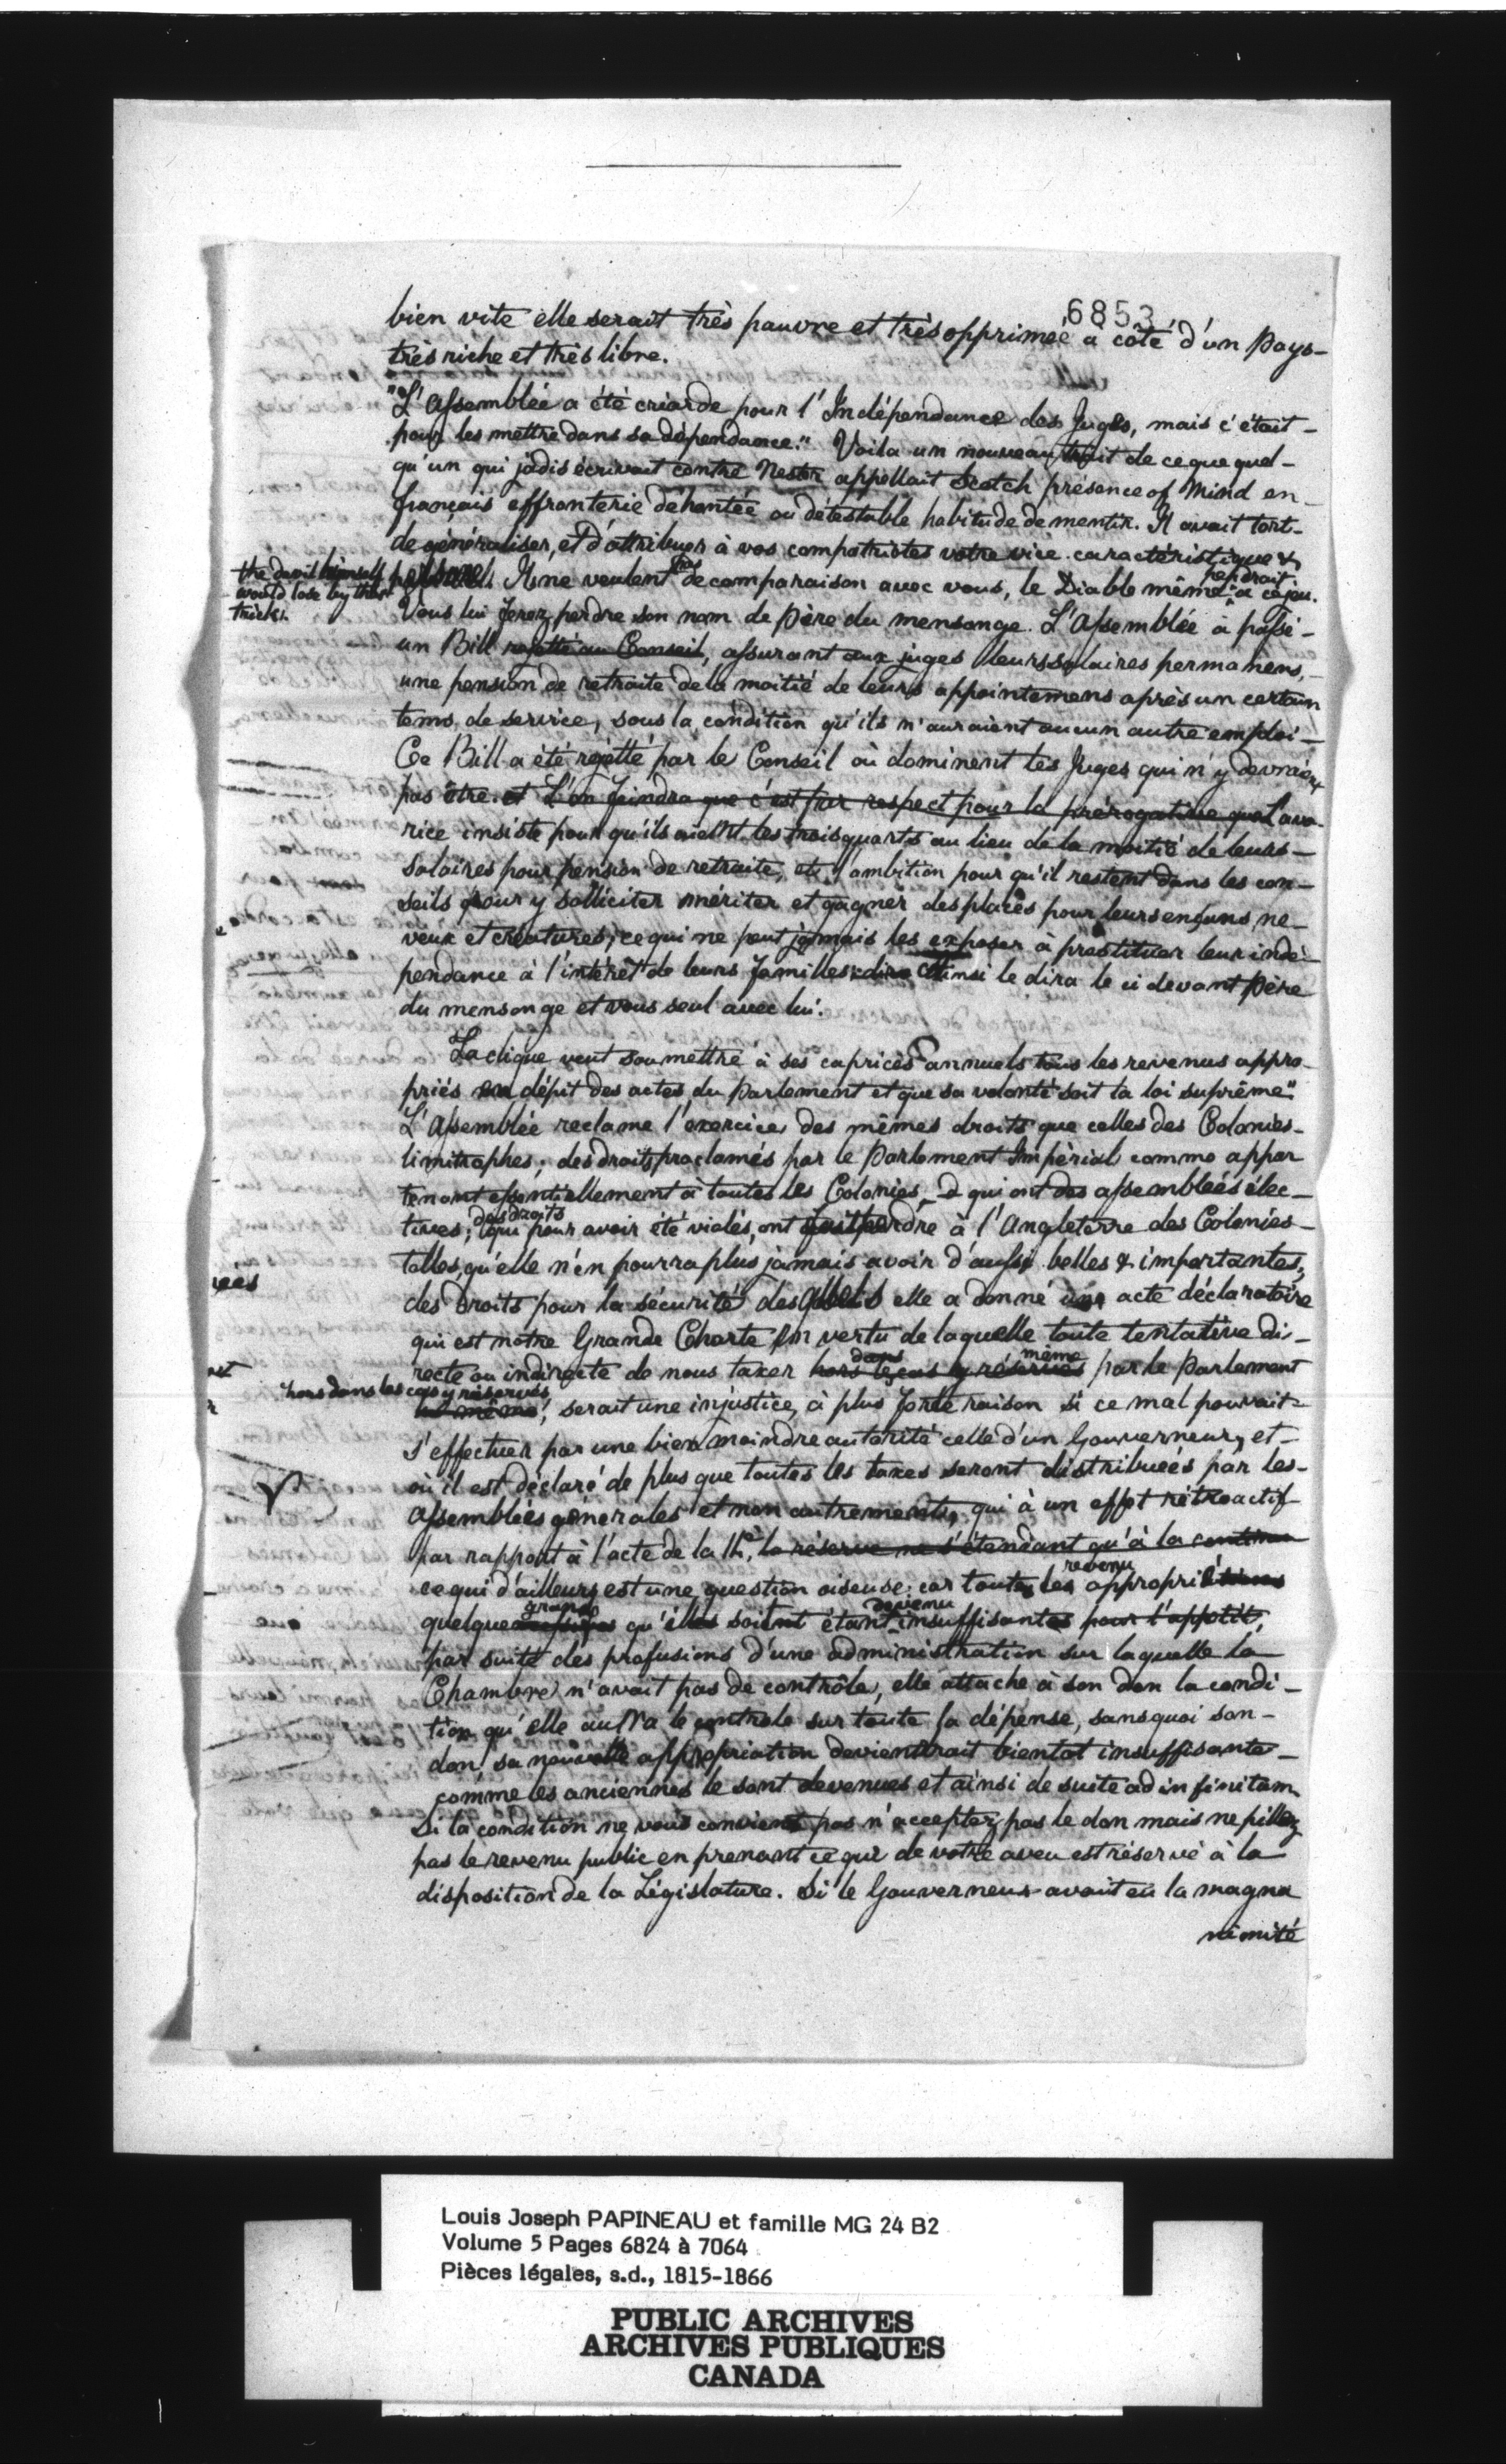 6853
bien vite elle serait très pauvre et très opprimée à côté d'un Pays-
très riche et très libre.
"L'Assemblée a été criarde pour l'Indépendance des Juges, mais c'était-
pour les mettre dans sa dépendance." Voila un nouveau trait de ce que quel-
qu'un qui jadis écrivait contre Nestor appellait Scotch présence of mind en-
français effronterie déhontée ou détestable habitude de mentir. Il avait tort-
de généraliser, et d'attribuer à vos compatriotes votre vice caractéristique &
personel. Ils ne veulent pas de comparaison avec vous, le Diable même perdrait à ce jeu.
the devil himself
would lose by that
trick.
Vous lui ferez perdre son nom de Père du mensonge. L'Assemblée à passé-
un Bill rejetté au Conseil, assurant aux juges leurs salaires permanens,-
une pension de retraite de la moitié de leurs appointemens après un certain
tems de service, sous la condition qu'ils n'auraient aucun autre emploi-
Ce Bill a été rejetté par le Conseil où dominent les Juges qui n'y devraient
pas être. et L'on feindra que c'est par respect pour la prérogative que L'ava-
rice insiste pour qu'ils aient les trois quarts au lieu de la moitié de leurs-
Salaires pour pension de retraite, et l'ambition pour qu'il restent dans les con-
seils pour y solliciter mériter et gagner des places pour leurs enfans ne-
veux et créatures; ce qui ne peut jamais les exposer à prostituer leur indé-
pendance à l'intérêt de leurs familles: dira Ainsi le dira le ci devant Père
du mensonge et vous seul avec lui.
La clique veut soumettre à ses caprices annuels tous les revenus appro-
priés en dépit des actes du Parlement et que sa volonté soit la loi suprême"
L'Assemblée reclame l'exercice des mêmes droits que celles des Colonies-
limitrophes; des droits proclamés par le Parlement Impérial comme appar
tenant essentiellement à toutes les Colonies, qui ont des assembleés élec-
tives; des droits qui pour avoir été violés, ont fait perdre à l'Angleterre des Colonies-
telles, qu'elle n'en pourra plus jamais avoir d'aussi belles & importantes,
des Droits pour la sécurité desquels elle a donné un acte déclaratoire
qui est notre Grande Charte En vertu de laquelle toute tentative di-
recte ou indirecte de nous taxer hors dans les cas y réservés même par le Parlement
hors dans les cas y réservés
lui même, serait une injustice, à plus forte raison si ce mal pouvait-
s'effectuer par une bien moindre autorité celle d'un Gouverneur, et-
où il est déclaré de plus que toutes les taxes seront distribuées par les-
assemblées générales et non autrement, qui à un effet rétroactif-
par rapport à l'acte de la 14e, la réserve ne s'étendant qu'à la
ce qui d'ailleurs est une question oiseuse; car toutes les revenu appropriations
quelque grand qu'elles soient étant devenu insuffisantes pour l'appétit,
par suite des profusions d'une administration sur laquelle la
Chambre n'avait pas de contrôle, elle attache à son don la condi-
tion qu'elle aura le controle sur toute la dépense, sans quoi son-
don, sa nouvelle appropriation deviendrait bientot insuffisante-
comme les anciennes le sont devenues et ainsi de suite ad infinitam
Si la condition ne vous convient pas n'acceptez pas le don mais ne pillez
pas le revenu public en prenant ce qui de votre aveu est réservé à la
disposition de la Législature. Si le Gouverneur avait eu la magna
nimité
Louis Joseph PAPINEAU et famille MG 24 B2
Volume 5 Pages 6824 à 7064
Pièces légales, s.d., 1815-1866
PUBLIC ARCHIVES
ARCHIVES PUBLIQUES
CANADA